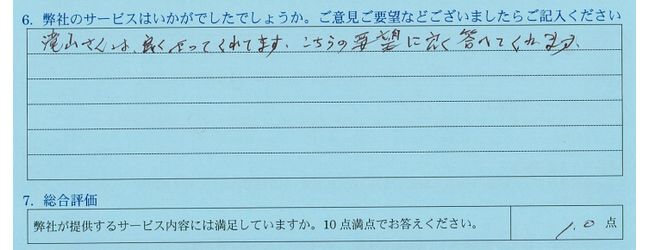 6. 弊社のサービスはいかがでしたでしょうか。ご意見ご要望などございましたらご記入ください
滝山さんは、良くやってくれてます、こちらの要望に良く答へてくれます、
7. 総合評価
弊社が提供するサービス内容には満足していますか。10点満点でお答えください。 10 点